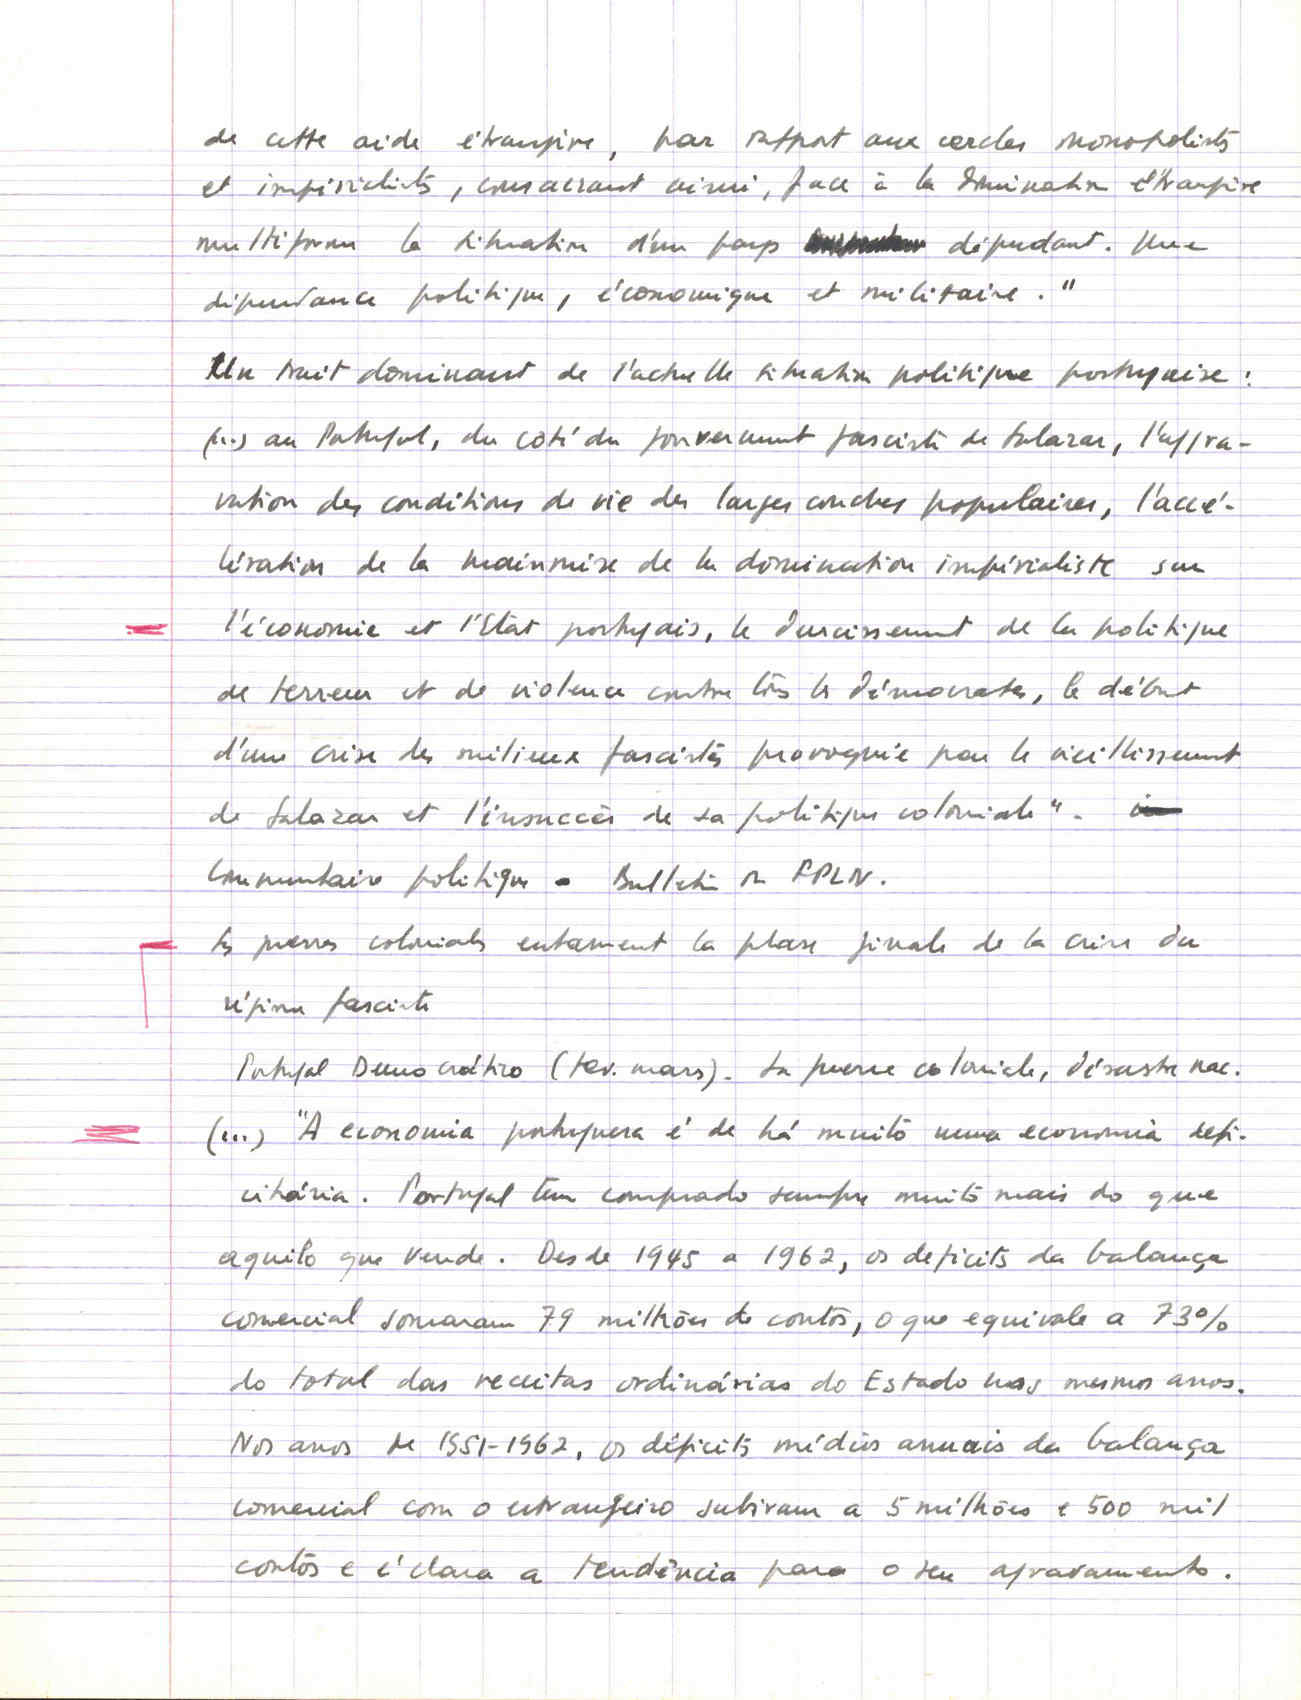 de cette aide étrangère, par rapport aux cercles monopolistes
et impérialistes, consacrant ainsi, face à la domination étrangère
multiforme la situation d'un pays dépendant. Une
dépendance politique, économique et militaire."
Un trait dominant de l'actuelle situation politique portugaise :
(...) au Portugal, du coté du gouvernement fasciste de Salazar, l'aggra-
vation des conditions de vie des larges couches populaires, l'accé-
lération de la mainmise de la domination impérialiste sur
l'économie et l'Etat portugais, le durcissement de la politique
de terreur et de violence contre tous les démocrates, le début
d'une crise des milieux fascistes provoquée par le vieillissement
de Salazar et l'insuccès de sa politique coloniale".
Commentaire politique - Bulletin FPLN.
Les guerres coloniales entament la phase finale de la crise du
régime fasciste
Portugal Democrático (fev. mars). La guerre coloniale, désastre nac.
(...) "A economia portuguesa é de há muito uma economia defi-
citária. Portugal tem comprado sempre muito mais do que
aquilo que vende. Desde 1945 a 1962, os deficits da balança
comercial somaram 79 milhões de contos, o que equivale a 73%
do total das receitas ordinárias do Estado nos mesmos anos.
Nos anos de 1951-1962, os déficits médios anuais da balança
comercial com o estrangeiro subiram a 5 milhões e 500 mil
contos e é clara a tendência para o seu agravamento.